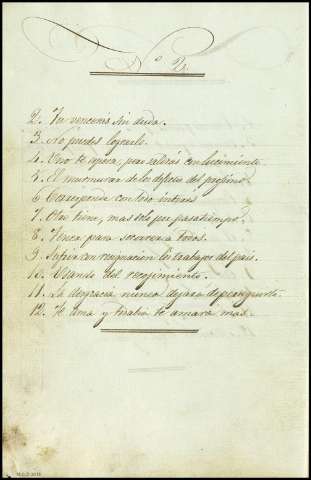 Nº 2.
2. Tu venceras sin duda.
3. No puedes lograrlo.
4. Uno te espera, pero saldrás con lucimiento
5. El murmurar de los defectos del progimo.
6. Corresponde con todo interes
7. Otra tiene, mas solo por pasatiempo.
8. Tenea para socorrer a todos.
9. Sufrir con resignacion los trabajos del pais.
10. Usando del recojimiento.
11. La desgracia nunca dejará de perseguirte.
12. Te ama y todavia te amara mas.